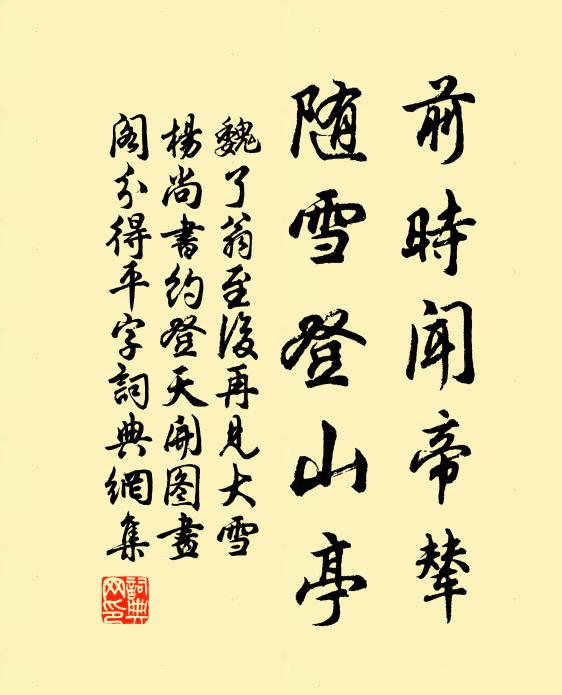 前時聞帝輦
随雪登山亭
魏了翁至後再見大雪
楊尚書約登天開图畫
阁分得平字詞典網集
詞典网印